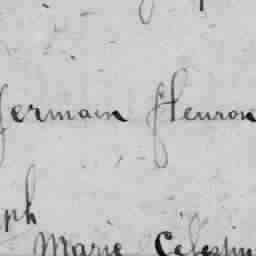 Germain fleuron
ph
Marie Célestin